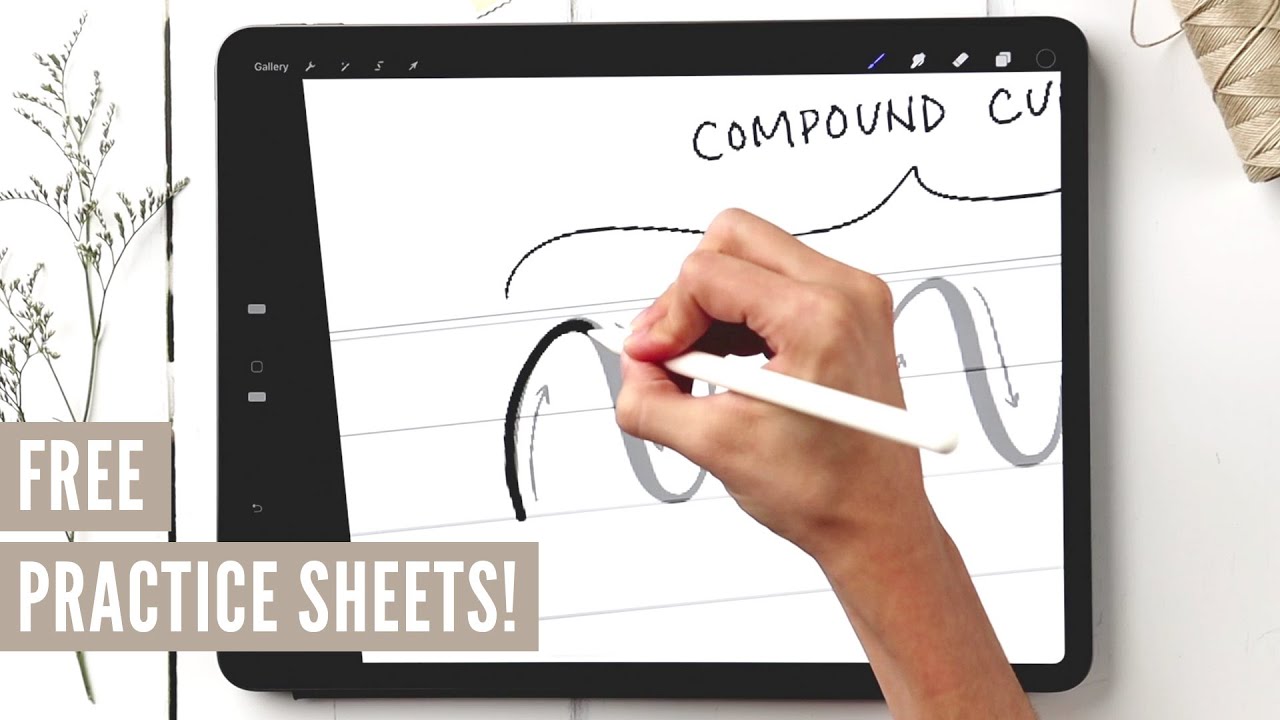 Gallery
COMPOUND CU
FREE
PRACTICE SHEETS!